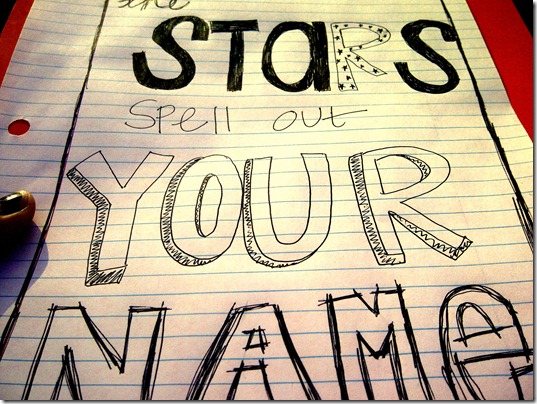 the
STaRS
Spell out
YOUR
NAMe